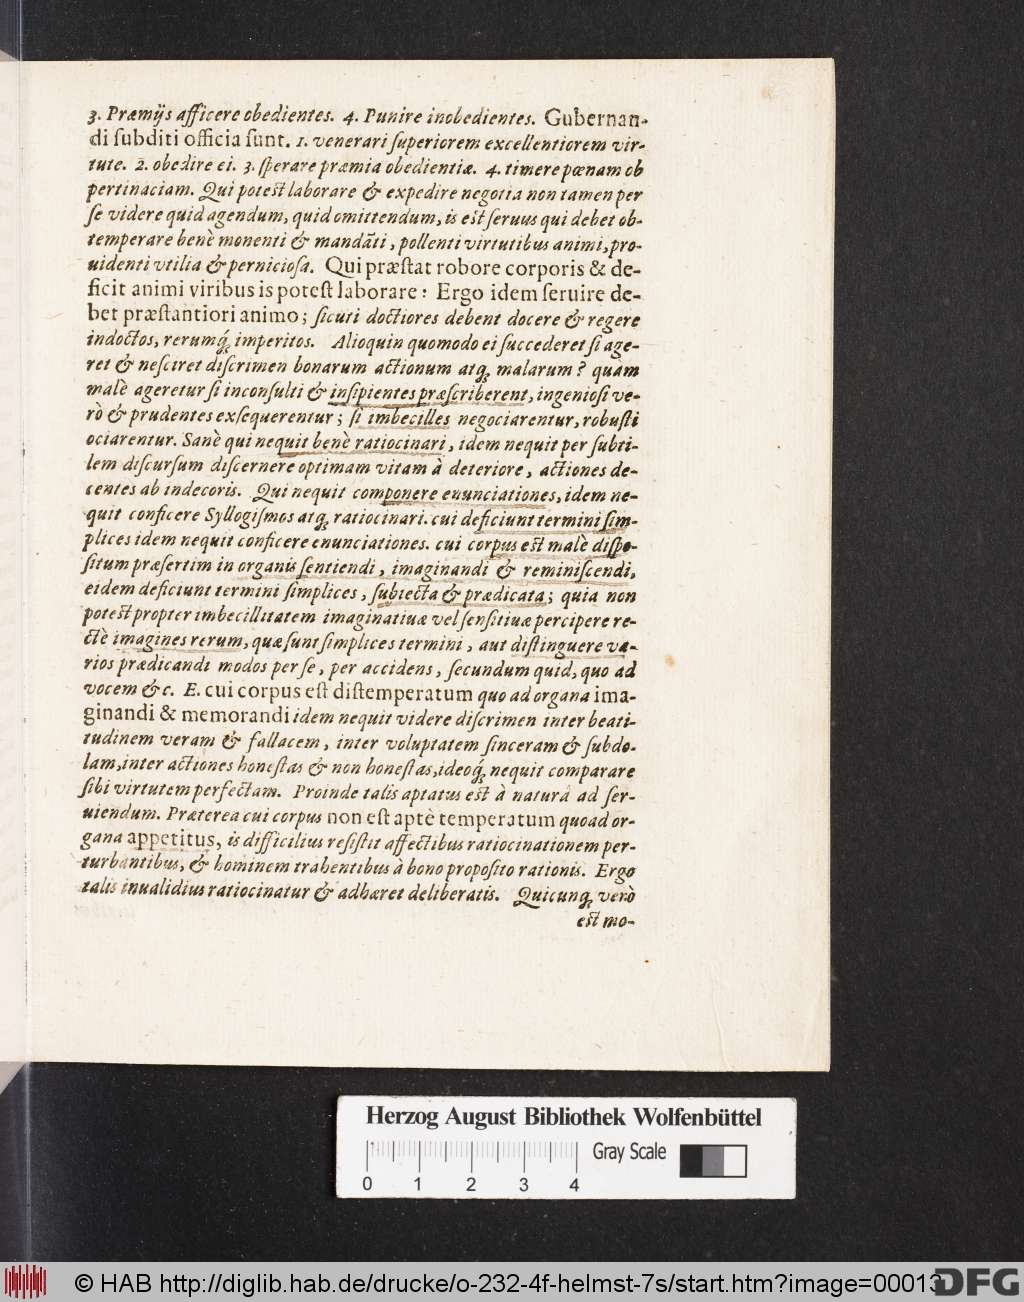 3. Præmijs afficere obedientes. 4. Punire inobedientes. Gubernan-
di subditi officia sunt. 1. venerari superiorem excellentiorem vir-
tute. 2. obedire ei. 3. sperare præmia obedientiæ. 4. timere pœnam ob
pertinaciam. Qui potest laborare & expedire negotia non tamen per
se videre quid agendum, quid omittendum, is est seruus qui debet ob-
temperare benè monenti & mandãti, pollenti virtutibus animi, pro-
uidenti vtilia & perniciosa. Qui præstat robore corporis & de-
ficit animi viribus is potest laborare: Ergo idem seruire de-
bet præstantiori animo; sicuti doctiores debent docere & regere
indoctos, rerumq́; imperitos. Alioquin quomodo ei succederet si age-
ret & nesciret discrimen bonarum actionum atq; malarum? quam
malè ageretur si inconsulti & insipientes præscriberent, ingeniosi ve-
rò & prudentes exsequerentur; si imbecilles negociarentur, robusti
ociarentur. Sanè qui nequit benè ratiocinari, idem nequit per subti-
lem discursum discernere optimam vitam à deteriore, actiones de-
centes ab indecoris. Qui nequit componere enunciationes, idem ne-
quit conficere Syllogismos atq; ratiocinari. cui deficiunt termini sim-
plices idem nequit conficere enunciationes. cui corpus est malè dispo-
situm præsertim in organis sentiendi, imaginandi & reminiscendi,
eidem deficiunt termini simplices, subiecta & prædicata; quia non
potest propter imbecillitatem imaginatiuæ vel sensitiuæ percipere re-
ctè imagines rerum, quæ sunt simplices termini, aut distinguere va-
rios prædicandi modos per se, per accidens, secundum quid, quo ad
vocem &c. E. cui corpus est distemperatum quo ad organa ima-
ginandi & memorandi idem nequit videre discrimen inter beati-
tudinem veram & fallacem, inter voluptatem sinceram & subdo-
lam, inter actiones honestas & non honestas, ideoq́; nequit comparare
sibi virtutem perfectam. Proinde talis aptatus est à naturâ ad ser-
uiendum. Præterea cui corpus non est aptè temperatum quoad or-
gana appetitus, is difficilius resistit affectibus ratiocinationem per-
turbantibus, & hominem trahentibus à bono proposito rationis. Ergo
talis inualidius ratiocinatur & adhæret deliberatis. Quicunq; verò
est mo-
Herzog August Bibliothek Wolfenbüttel
Gray Scale
0 1 2 3 4
© HAB http://diglib.hab.de/drucke/o-232-4f-helmst-7s/start.htm?image=00013
DFG